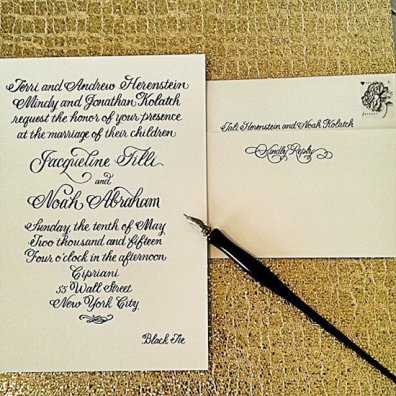 Terri and Andrew Herenstein
Mindy and Jonathan Kolatch
request the honor of your presence
at the marriage of their children
Jacqueline Tilli
and
Noah Abraham
Sunday the tenth of May
Two thousand and fifteen
Four o'clock in the afternoon
Cipriani
55 Wall Street
New York City
Black Tie
Tali Herenstein and Noah Kolatch
Kindly Reply